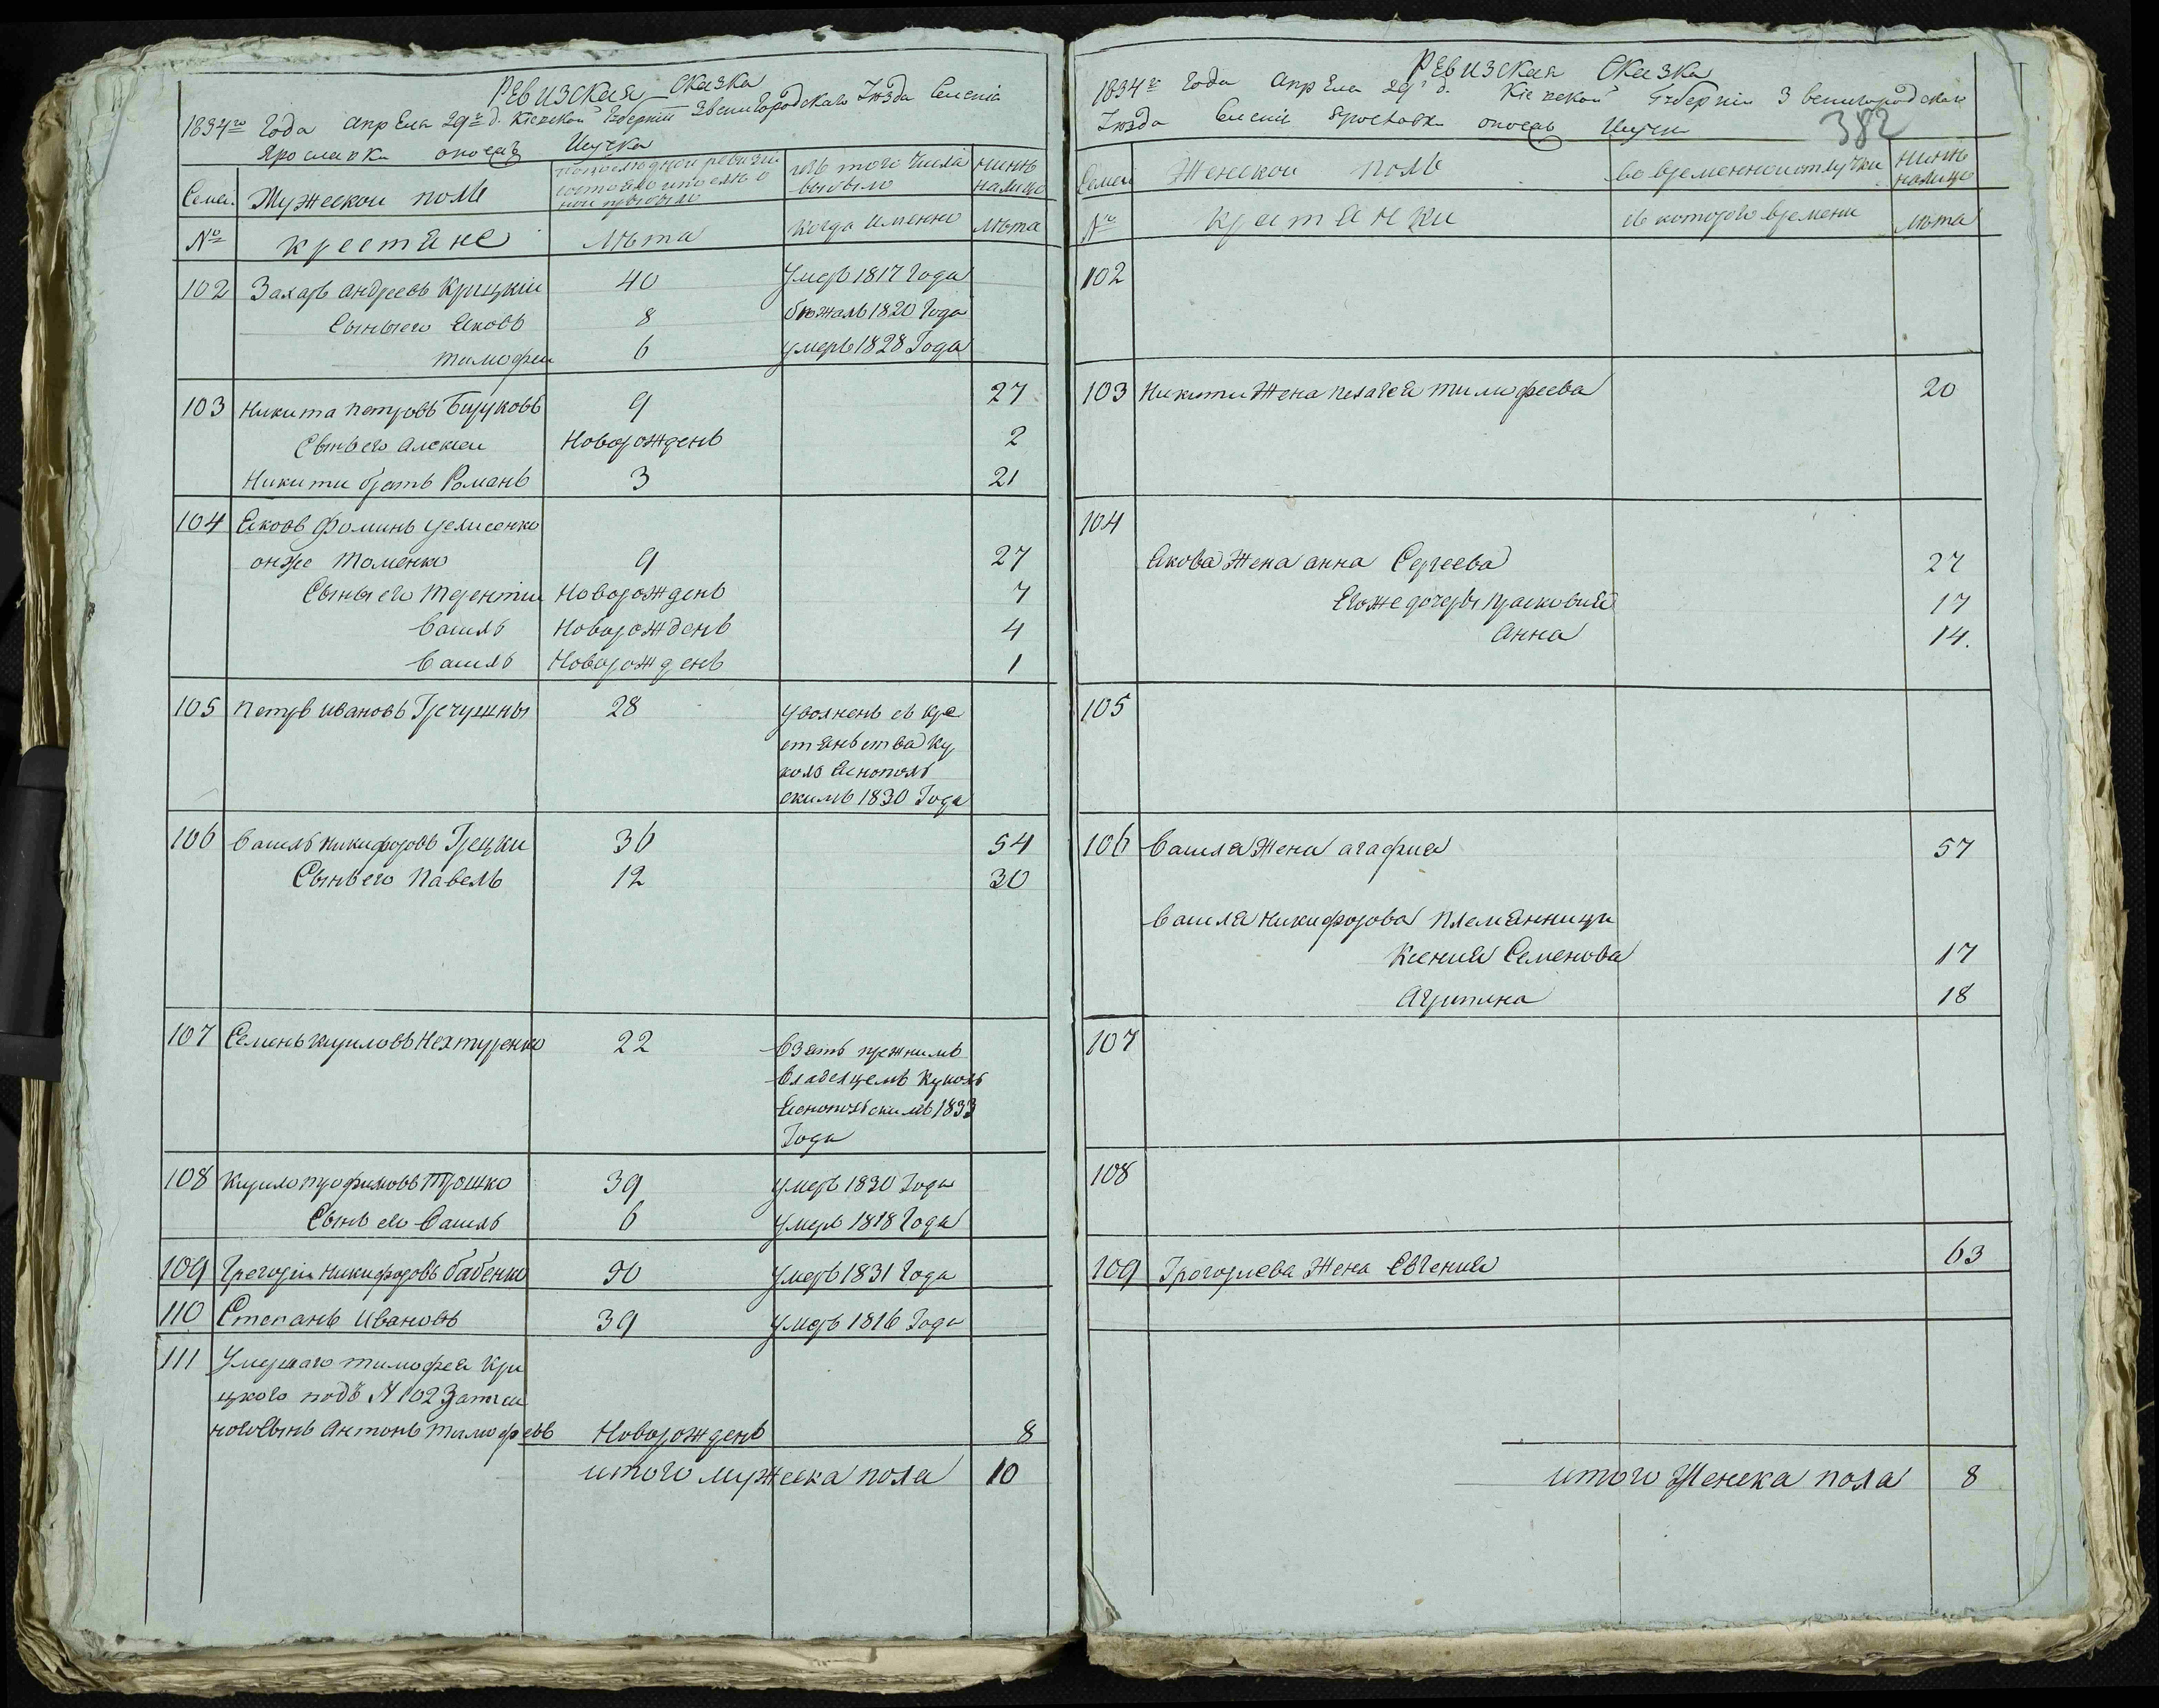 Ревизская Сказка
1834го Года Апреля 29го д. Киевской Губернии Звенигородского Уезда Селения
Ярославки
Семеи
Мужеской полъ
изъ того числа выбыло
ныне налицо
№
крестяне
лета
когда именно
лета
102 Захаръ андреевъ Крицкий 40 умеръ 1817 Года
Сыны его Яковъ 8 бежалъ 1820 Года
тимофеи 6 умеръ 1828 Года
103 Никита петровъ Бируковъ 9 27
Сынъ его алексеи Новорожденъ 2
Никити братъ Романъ 3 21
104 Яковъ Фоминъ
онже Томенко 9 27
Сыны его Терентии Новорожденъ 7
Василь Новорожденъ 4
Василь Новорожденъ 1
105 петръ ивановъ Гречушны 28 уволненъ съ кре
стянства Ку
коль Яснополь
скимъ 1830 Года
106 Василь никифоровъ Грецки 36 54
Сынъ его Павелъ 12 30
107 Семенъ кириловъ Нехтуренко 22 Взятъ прежнимъ
Владелцемъ Куколь
Яснопольскимъ 1833
Года
108 Кирило трофимовъ Трошко 39 умеръ 1830 Года
Сынъ его Василь 6 умеръ 1818 Года
109 Грегории никифоровъ бабенко 50 умеръ 1831 Года
110 Степанъ Ивановъ 39 умеръ 1816 Года
111 Умершаго тимофея Кри
цкого подъ № 102
Сынъ антонъ тимофеевъ Новорожденъ 8
итого мужеска пола 10
Ревизская Сказка
1834го Года Апреля 29го д. Киевской Губернии Звенигородского
Уезда Селения
382
Семеи
Женской полъ
во временной отлучки
ныне налицо
№
крестянки
съ которого времени
лета
102
103 Никити жена пелагея тимофеева 20
104
Якова жена анна Сергеева 27
Егоже дочеры прасковия 17
Анна 14.
105
106 Василя жена агафия 57
Василя Никифорова племянници
Ксения Семенова 17
Агрипина 18
107
108
109 Грегориева жена Евгения 63
итого Женска пола 8